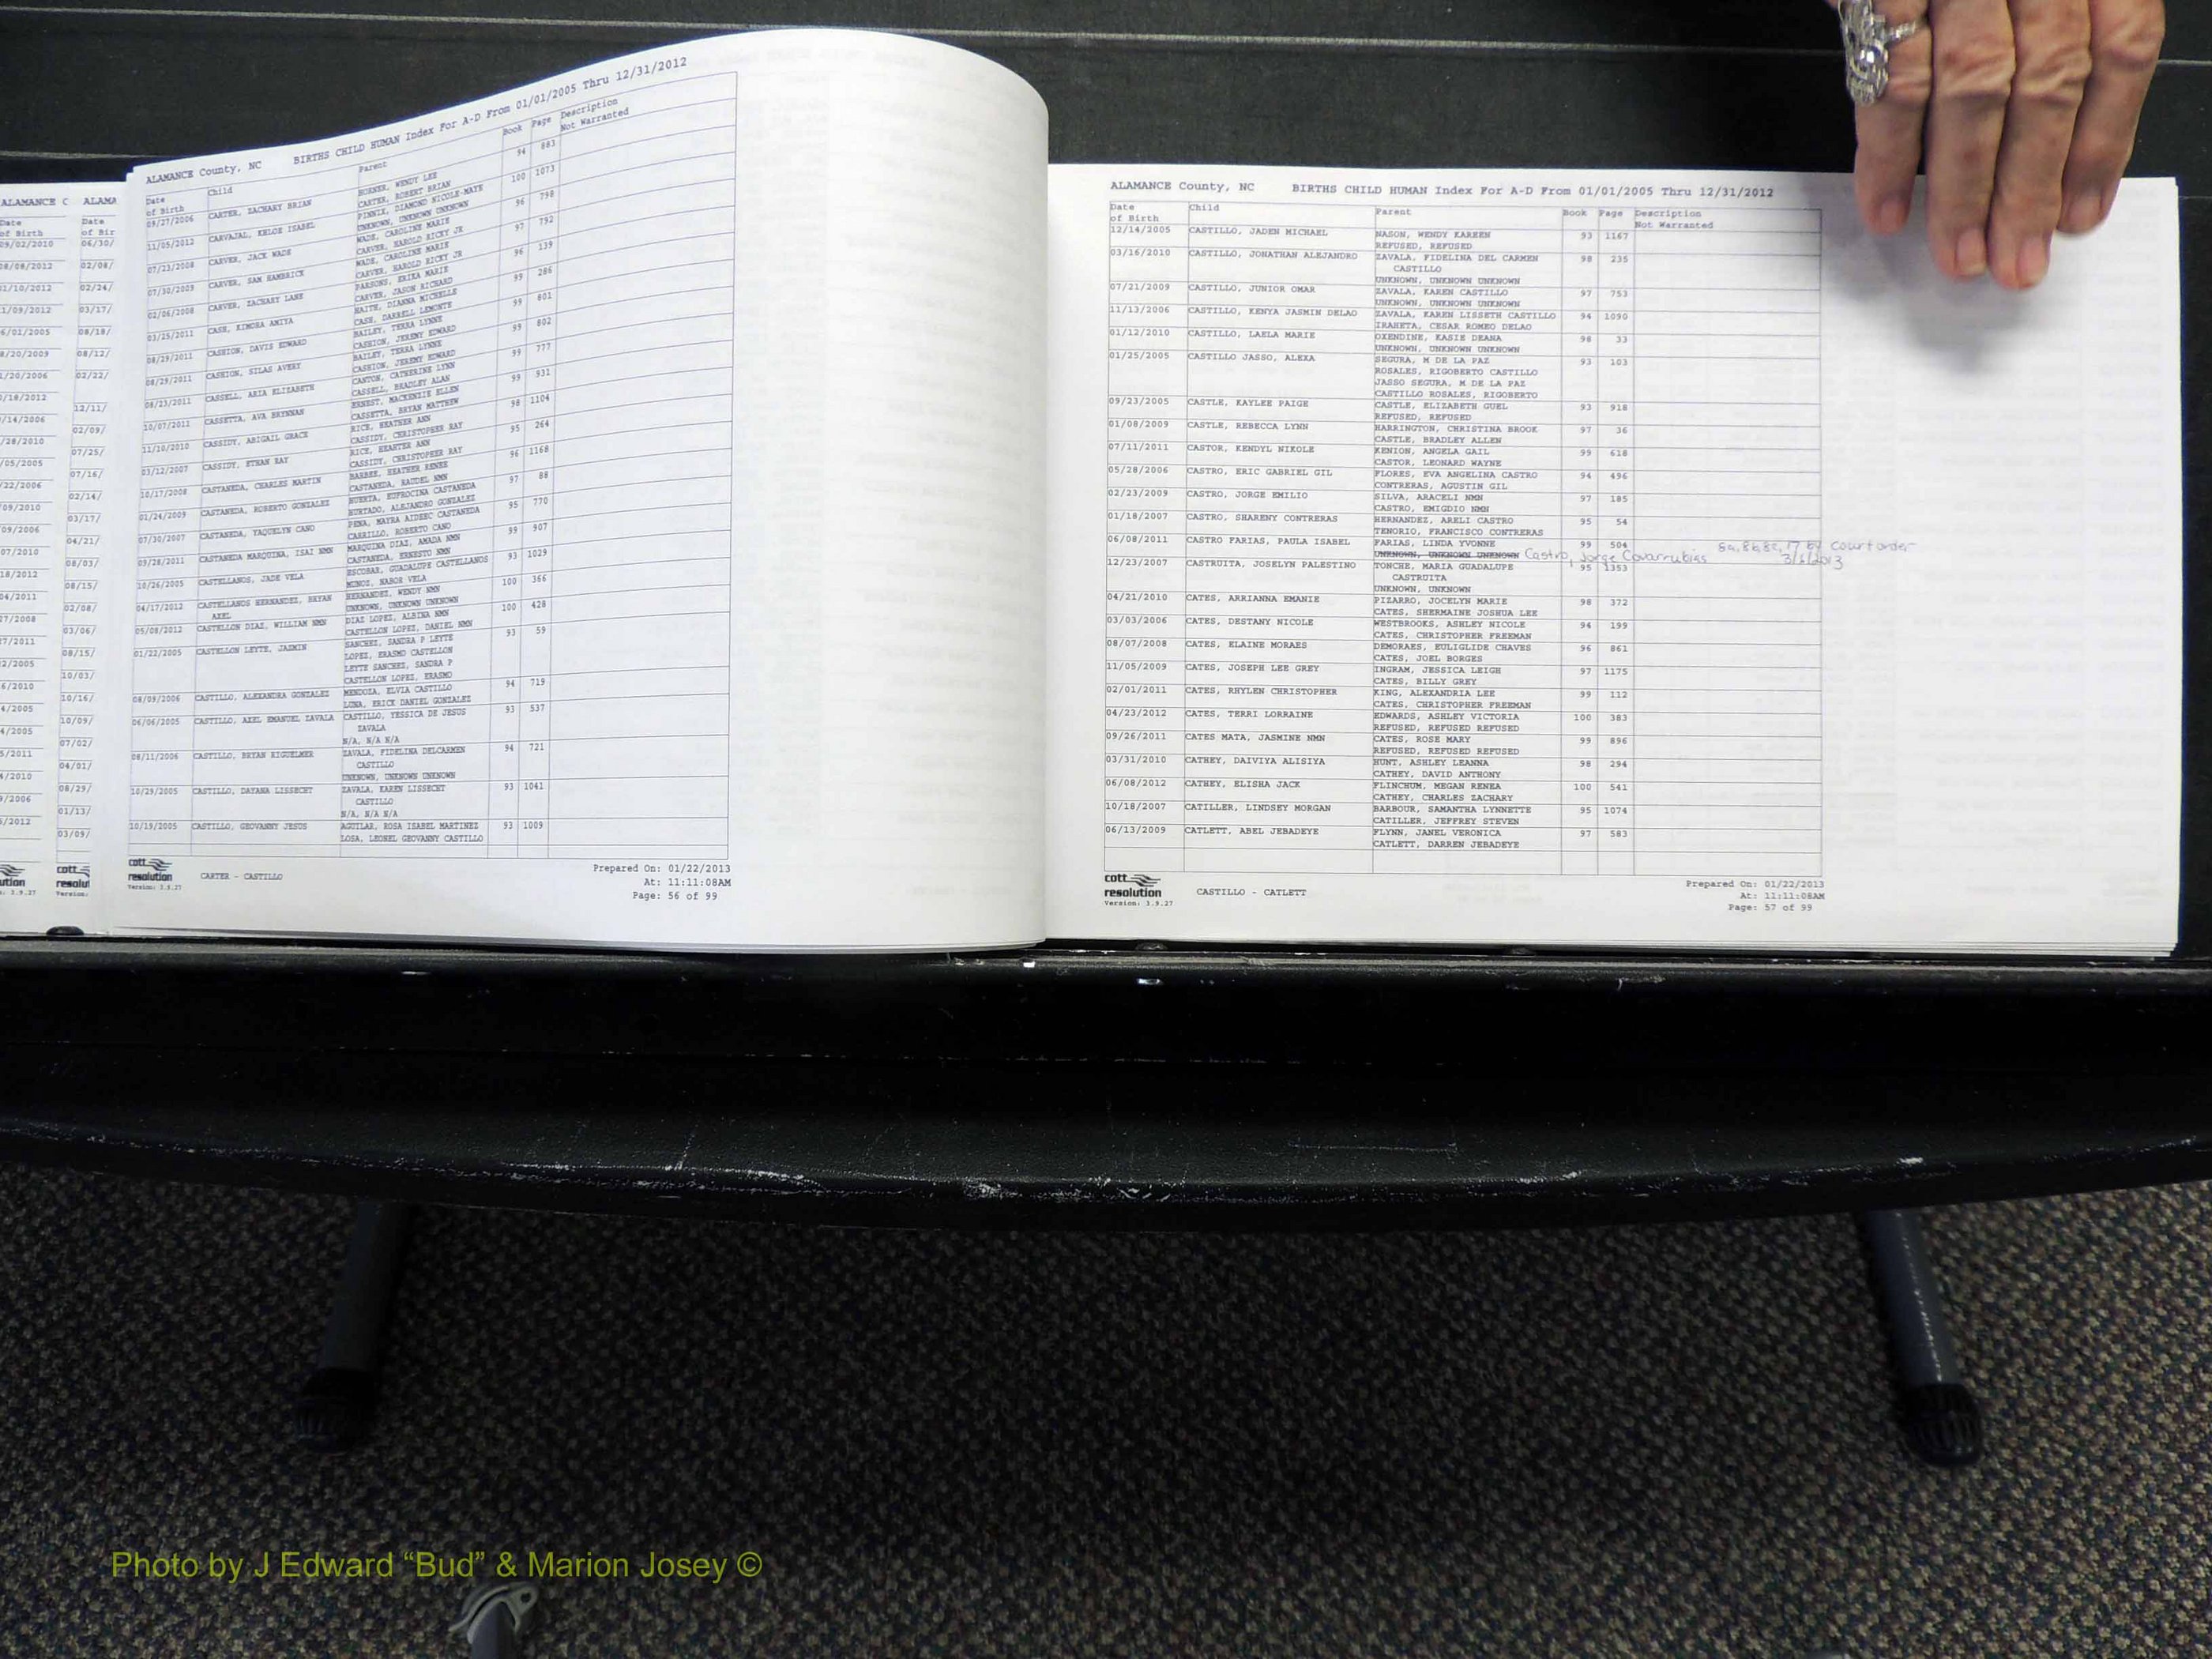 ALAMANCE C
Date
of Birth
09/02/2010
08/08/2012
ALAMA
Date
of Bir
06/30/
02/08/
02/24/
03/17/
08/18/
08/12/
02/22/
12/11/
02/09/
07/25/
07/16/
02/14/
03/17/
04/21/
08/03/
08/15/
02/08/
03/06/
08/15/
10/03/
10/16/
10/09/
07/02/
04/01/
08/29/
01/13/
03/09/
ALAMANCE County, NC BIRTHS CHILD HUMAN Index For A-D From 01/01/2005 Thru 12/31/2012
Date of Birth Child Parent Book Page Description
Not Warranted
09/27/2006 CARTER, ZACHARY BRIAN HORNER, WENDY LEE 94 883
CARTER, ROBERT BRIAN
11/05/2012 CARVAJAL, KHLOE ISABEL PINNIX, DIAMOND NICOLE-MAYE 100 1073
UNKNOWN, UNKNOWN UNKNOWN
07/23/2008 CARVER, JACK WADE WADE, CAROLINE MARIE 96 798
CARVER, HAROLD RICKY JR
07/30/2009 CARVER, SAM HAMBRICK WADE, CAROLINE MARIE 97 792
CARVER, HAROLD RICKY JR
02/06/2008 CARVER, ZACHARY LANE PARSONS, ERIKA MARIE 96 139
CARVER, JASON RICHARD
03/25/2011 CASH, KIMORA AMIYA HAITH, DIANNA MICHELLE 99 286
CASH, DARRELL LEMONTE
08/29/2011 CASHION, DAVIS EDWARD BAILEY, TERRA LYNNE 99 801
CASHION, JEREMY EDWARD
08/29/2011 CASHION, SILAS AVERY BAILEY, TERRA LYNNE 99 802
CASHION, JEREMY EDWARD
08/23/2011 CASSELL, ARIA ELIZABETH CANTON, CATHERINE LYNN 99 777
CASSELL, BRADLEY ALAN
10/07/2011 CASSETTA, AVA BRYNNAN ERNEST, MACKENZIE ELLEN 99 931
CASSETTA, BRYAN MATTHEW
11/10/2010 CASSIDY, ABIGAIL GRACE RICE, HEATHER ANN 98 1104
CASSIDY, CHRISTOPHER RAY
03/12/2007 CASSIDY, ETHAN RAY RICE, HEARTER ANN 95 264
CASSIDY, CHRISTOPHER RAY
10/17/2008 CASTANEDA, CHARLES MARTIN BARBEE, HEATHER RENEE 96 1168
CASTANEDA, RAUDEL NMN
01/24/2009 CASTANEDA, ROBERTO GONZALEZ HUERTA, EUFROCINA CASTANEDA 97 88
HURTADO, ALEJANDRO GONZALEZ
07/30/2007 CASTANEDA, YAQUELYN CANO PENA, MAYRA AIDEEC CASTANEDA 95 770
CARRILLO, ROBERTO CANO
09/28/2011 CASTANEDA MARQUINA, ISAI NMN MARQUINA DIAZ, AMADA NMN 99 907
CASTANEDA, ERNESTO NMN
10/26/2005 CASTELLANOS, JADE VELA ESCOBAR, GUADALUPE CASTELLANOS 93 1029
MUNOZ, NABOR VELA
04/17/2012 CASTELLANOS HERNANDEZ, BRYAN HERNANDEZ, WENDY NMN 100 366
AXEL UNKNOWN, UNKNOWN UNKNOWN
05/08/2012 CASTELLON DIAZ, WILLIAM NMN DIAZ LOPEZ, ALBINA NMN 100 428
CASTELLON LOPEZ, DANIEL NMN
01/22/2005 CASTELLON LEYTE, JAZMIN SANCHEZ, SANDRA P LEYTE 93 59
LOPEZ, ERASMO CASTELLON
LEYTE SANCHEZ, SANDRA P
CASTELLON LOPEZ, ERASMO
08/09/2006 CASTILLO, ALEXANDRA GONZALEZ MENDOZA, ELVIA CASTILLO 94 719
LUNA, ERICK DANIEL GONZALEZ
06/06/2005 CASTILLO, AXEL EMANUEL ZAVALA CASTILLO, YESSICA DE JESUS 93 537
ZAVALA
N/A, N/A N/A
08/11/2006 CASTILLO, BRYAN RIGUELMER ZAVALA, FIDELINA DELCARMEN 94 721
CASTILLO
UNKNOWN, UNKNOWN UNKNOWN
10/29/2005 CASTILLO, DAYANA LISSECHT ZAVALA, KAREN LISSECHT 93 1041
CASTILLO
N/A, N/A N/A
10/19/2005 CASTILLO, GEOVANNY JESUS AGUILAR, ROSA ISABEL MARTINEZ 93 1009
LOSA, LEONEL GEOVANNY CASTILLO
cott
resolution
Version: 3.9.27
CARTER - CASTILLO
Prepared On: 01/22/2013
At: 11:11:08AM
Page: 56 of 99
ALAMANCE County, NC BIRTHS CHILD HUMAN Index For A-D From 01/01/2005 Thru 12/31/2012
Date of Birth Child Parent Book Page Description
Not Warranted
12/14/2005 CASTILLO, JADEN MICHAEL NASON, WENDY KAREEN 93 1167
REFUSED, REFUSED
03/16/2010 CASTILLO, JONATHAN ALEJANDRO ZAVALA, FIDELINA DEL CARMEN 98 235
CASTILLO
UNKNOWN, UNKNOWN UNKNOWN
07/21/2009 CASTILLO, JUNIOR OMAR ZAVALA, KAREN CASTILLO 97 753
UNKNOWN, UNKNOWN UNKNOWN
11/13/2006 CASTILLO, KENYA JASMIN DELAO ZAVALA, KAREN LISSETH CASTILLO 94 1090
IRAHETA, CESAR ROMEO DELAO
01/12/2010 CASTILLO, LAELA MARIE OXENDINE, KASIE DEANA 98 33
UNKNOWN, UNKNOWN UNKNOWN
01/25/2005 CASTILLO JASSO, ALEXA SEGURA, M DE LA PAZ 93 103
ROSALES, RIGOBERTO CASTILLO
JASSO SEGURA, M DE LA PAZ
CASTILLO ROSALES, RIGOBERTO
09/23/2005 CASTLE, KAYLEE PAIGE CASTLE, ELIZABETH GUEL 93 918
REFUSED, REFUSED
01/08/2009 CASTLE, REBECCA LYNN HARRINGTON, CHRISTINA BROOK 97 36
CASTLE, BRADLEY ALLEN
07/11/2011 CASTOR, KENDYL NIKOLE KENION, ANGELA GAIL 99 618
CASTOR, LEONARD WAYNE
05/28/2006 CASTRO, ERIC GABRIEL GIL FLORES, EVA ANGELINA CASTRO 94 496
CONTRERAS, AGUSTIN GIL
02/23/2009 CASTRO, JORGE EMILIO SILVA, ARACELI NMN 97 185
CASTRO, EMIGDIO NMN
01/18/2007 CASTRO, SHARENY CONTRERAS HERNANDEZ, ARELI CASTRO 95 54
TENORIO, FRANCISCO CONTRERAS
06/08/2011 CASTRO FARIAS, PAULA ISABEL FARIAS, LINDA YVONNE 99 504 8a, 8b, 8c, 17 by court order
UNKNOWN, UNKNOWN UNKNOWN Castro, Jorge Covarrubias
12/23/2007 CASTRUITA, JOSELYN PALESTINO TONCHE, MARIA GUADALUPE 95 1353
CASTRUITA
UNKNOWN, UNKNOWN
04/21/2010 CATES, ARRIANNA EMANIE PIZARRO, JOCELYN MARIE 98 372
CATES, SHERMAINE JOSHUA LEE
03/03/2006 CATES, DESTANY NICOLE WESTBROOKS, ASHLEY NICOLE 94 199
CATES, CHRISTOPHER FREEMAN
08/07/2008 CATES, ELAINE MORAES DEMORAES, EULIGLIDE CHAVES 96 861
CATES, JOEL BORGES
11/05/2009 CATES, JOSEPH LEE GREY INGRAM, JESSICA LEIGH 97 1175
CATES, BILLY GREY
02/01/2011 CATES, RHYLEN CHRISTOPHER KING, ALEXANDRIA LEE 99 112
CATES, CHRISTOPHER FREEMAN
04/23/2012 CATES, TERRI LORRAINE EDWARDS, ASHLEY VICTORIA 100 383
REFUSED, REFUSED REFUSED
09/26/2011 CATES MATA, JASMINE NMN CATES, ROSE MARY 99 896
REFUSED, REFUSED REFUSED
03/31/2010 CATHEY, DAIVIYA ALISIYA HUNT, ASHLEY LEANNA 98 294
CATHEY, DAVID ANTHONY
06/08/2012 CATHEY, ELISHA JACK FLINCHUM, MEGAN RENEA 100 541
CATHEY, CHARLES ZACHARY
10/18/2007 CATILLER, LINDSEY MORGAN BARBOUR, SAMANTHA LYNNETTE 95 1074
CATILLER, JEFFREY STEVEN
06/13/2009 CATLETT, ABEL JEBADEYE FLYNN, JANEL VERONICA 97 583
CATLETT, DARREN JEBADEYE
cott
resolution
Version: 3.9.27
CASTILLO - CATLETT
Prepared On: 01/22/2013
At: 11:11:08AM
Page: 57 of 99
Photo by J Edward “Bud” & Marion Josey ©